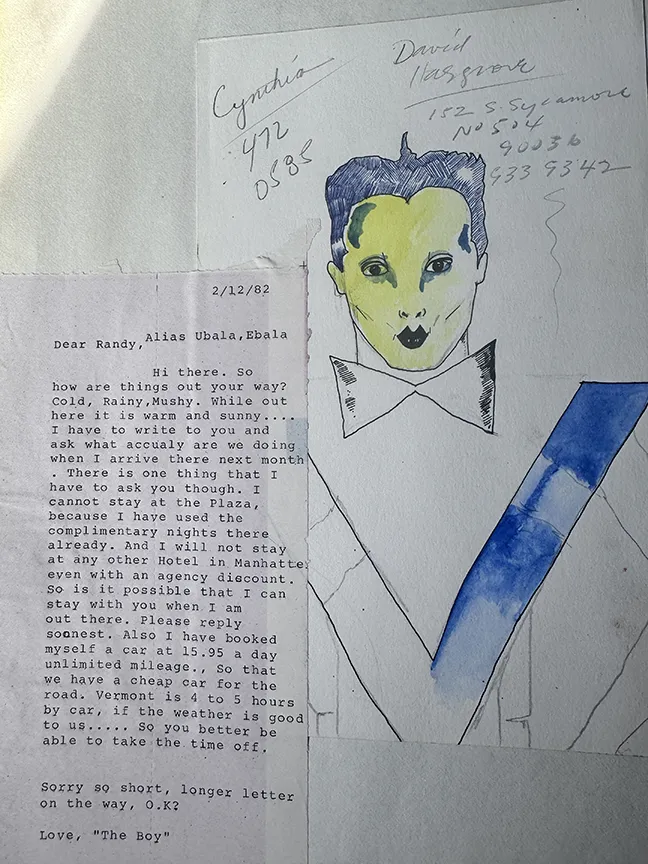 Cynthia
472
0585
David
Hasgrove
152 S. Sycamore
No 504
90036
933 9342
2/12/82
Dear Randy, Alias Ubala,Ebala
Hi there. So
how are things out your way?
Cold, Rainy,Mushy. While out
here it is warm and sunny....
I have to write to you and
ask what accualy are we doing
when I arrive there next month
. There is one thing that I
have to ask you though. I
cannot stay at the Plaza,
because I have used the
complimentary nights there
already. And I will not stay
at any other Hotel in Manhatte
even with an agency discount.
So is it possible that I can
stay with you when I am
out there. Please reply
soonest. Also I have booked
myself a car at 15.95 a day
unlimited mileage., So that
we have a cheap car for the
road. Vermont is 4 to 5 hours
by car, if the weather is good
to us..... So you better be
able to take the time off.
Sorry so short, longer letter
on the way, O.K?
Love, "The Boy"